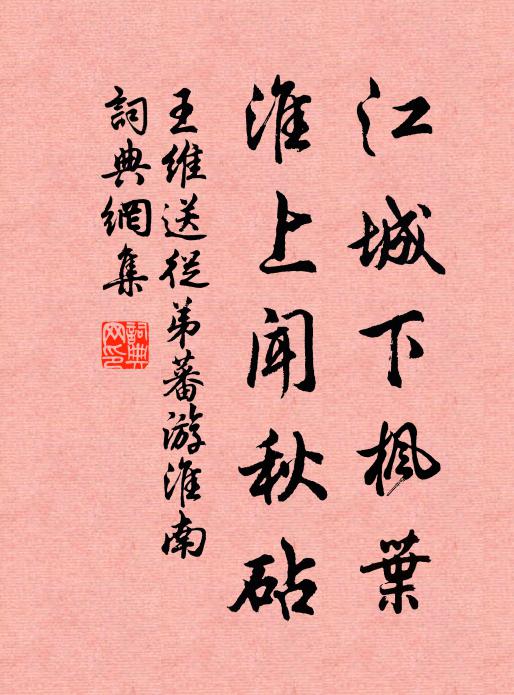 江城下楓葉
淮上聞秋砧
王維送從弟蕃游淮南
詞典網集
詞典网印